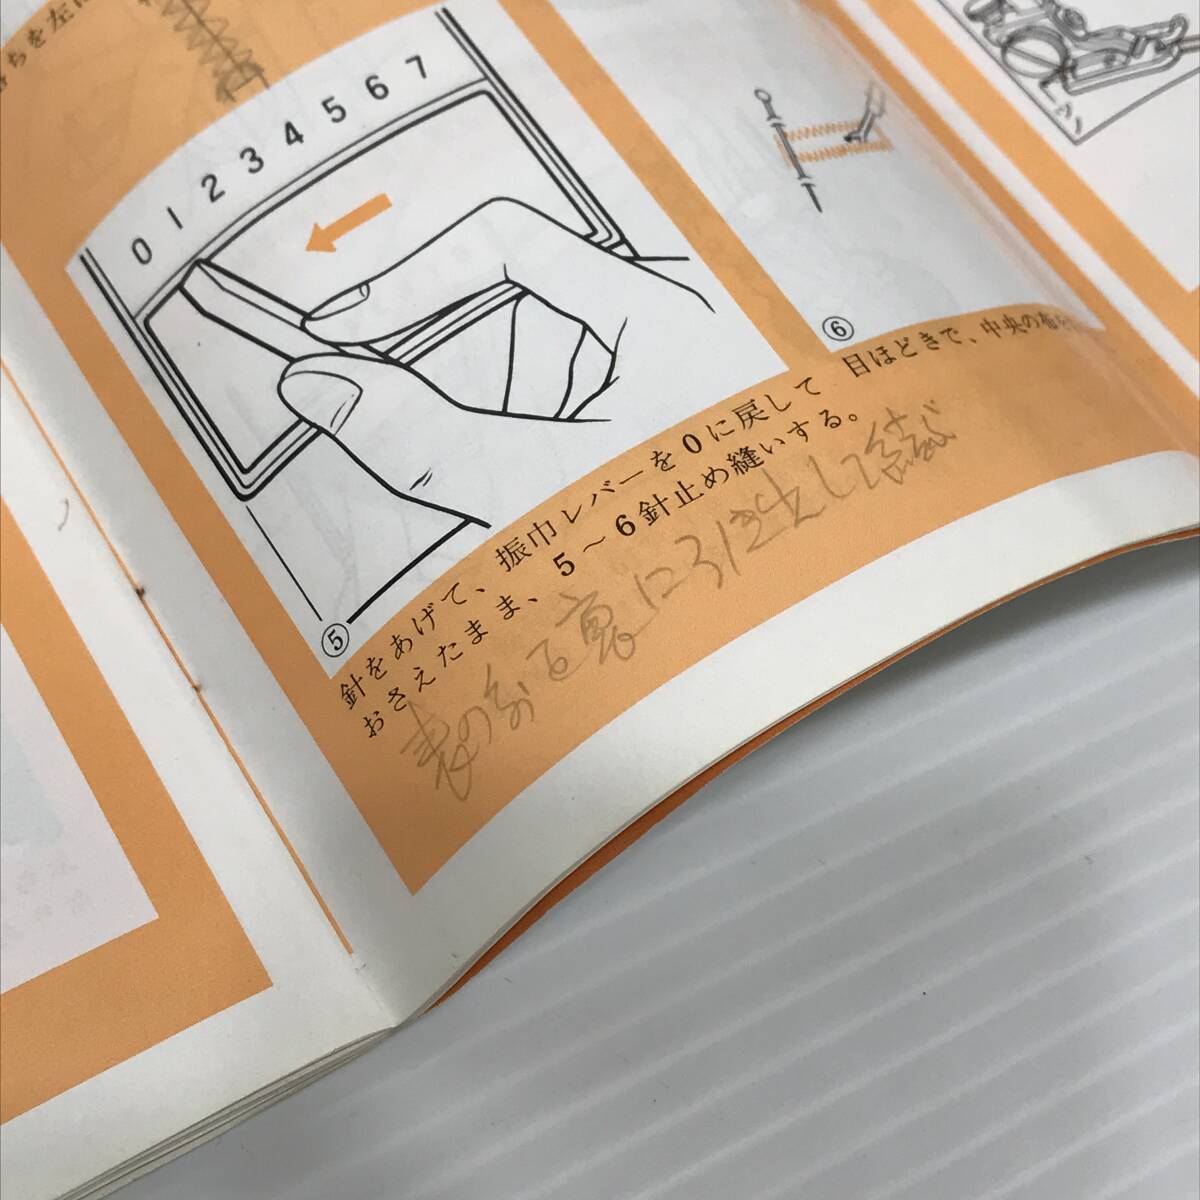 ちを左に
0 1 2 3 4 5 6 7
⑤
針をあげて、振巾レバーを0に戻して
おさえたまま、5～6針止め縫いする。
表の糸を裏に引き出して結ぶ
⑥
目ほどきで、中央の布を